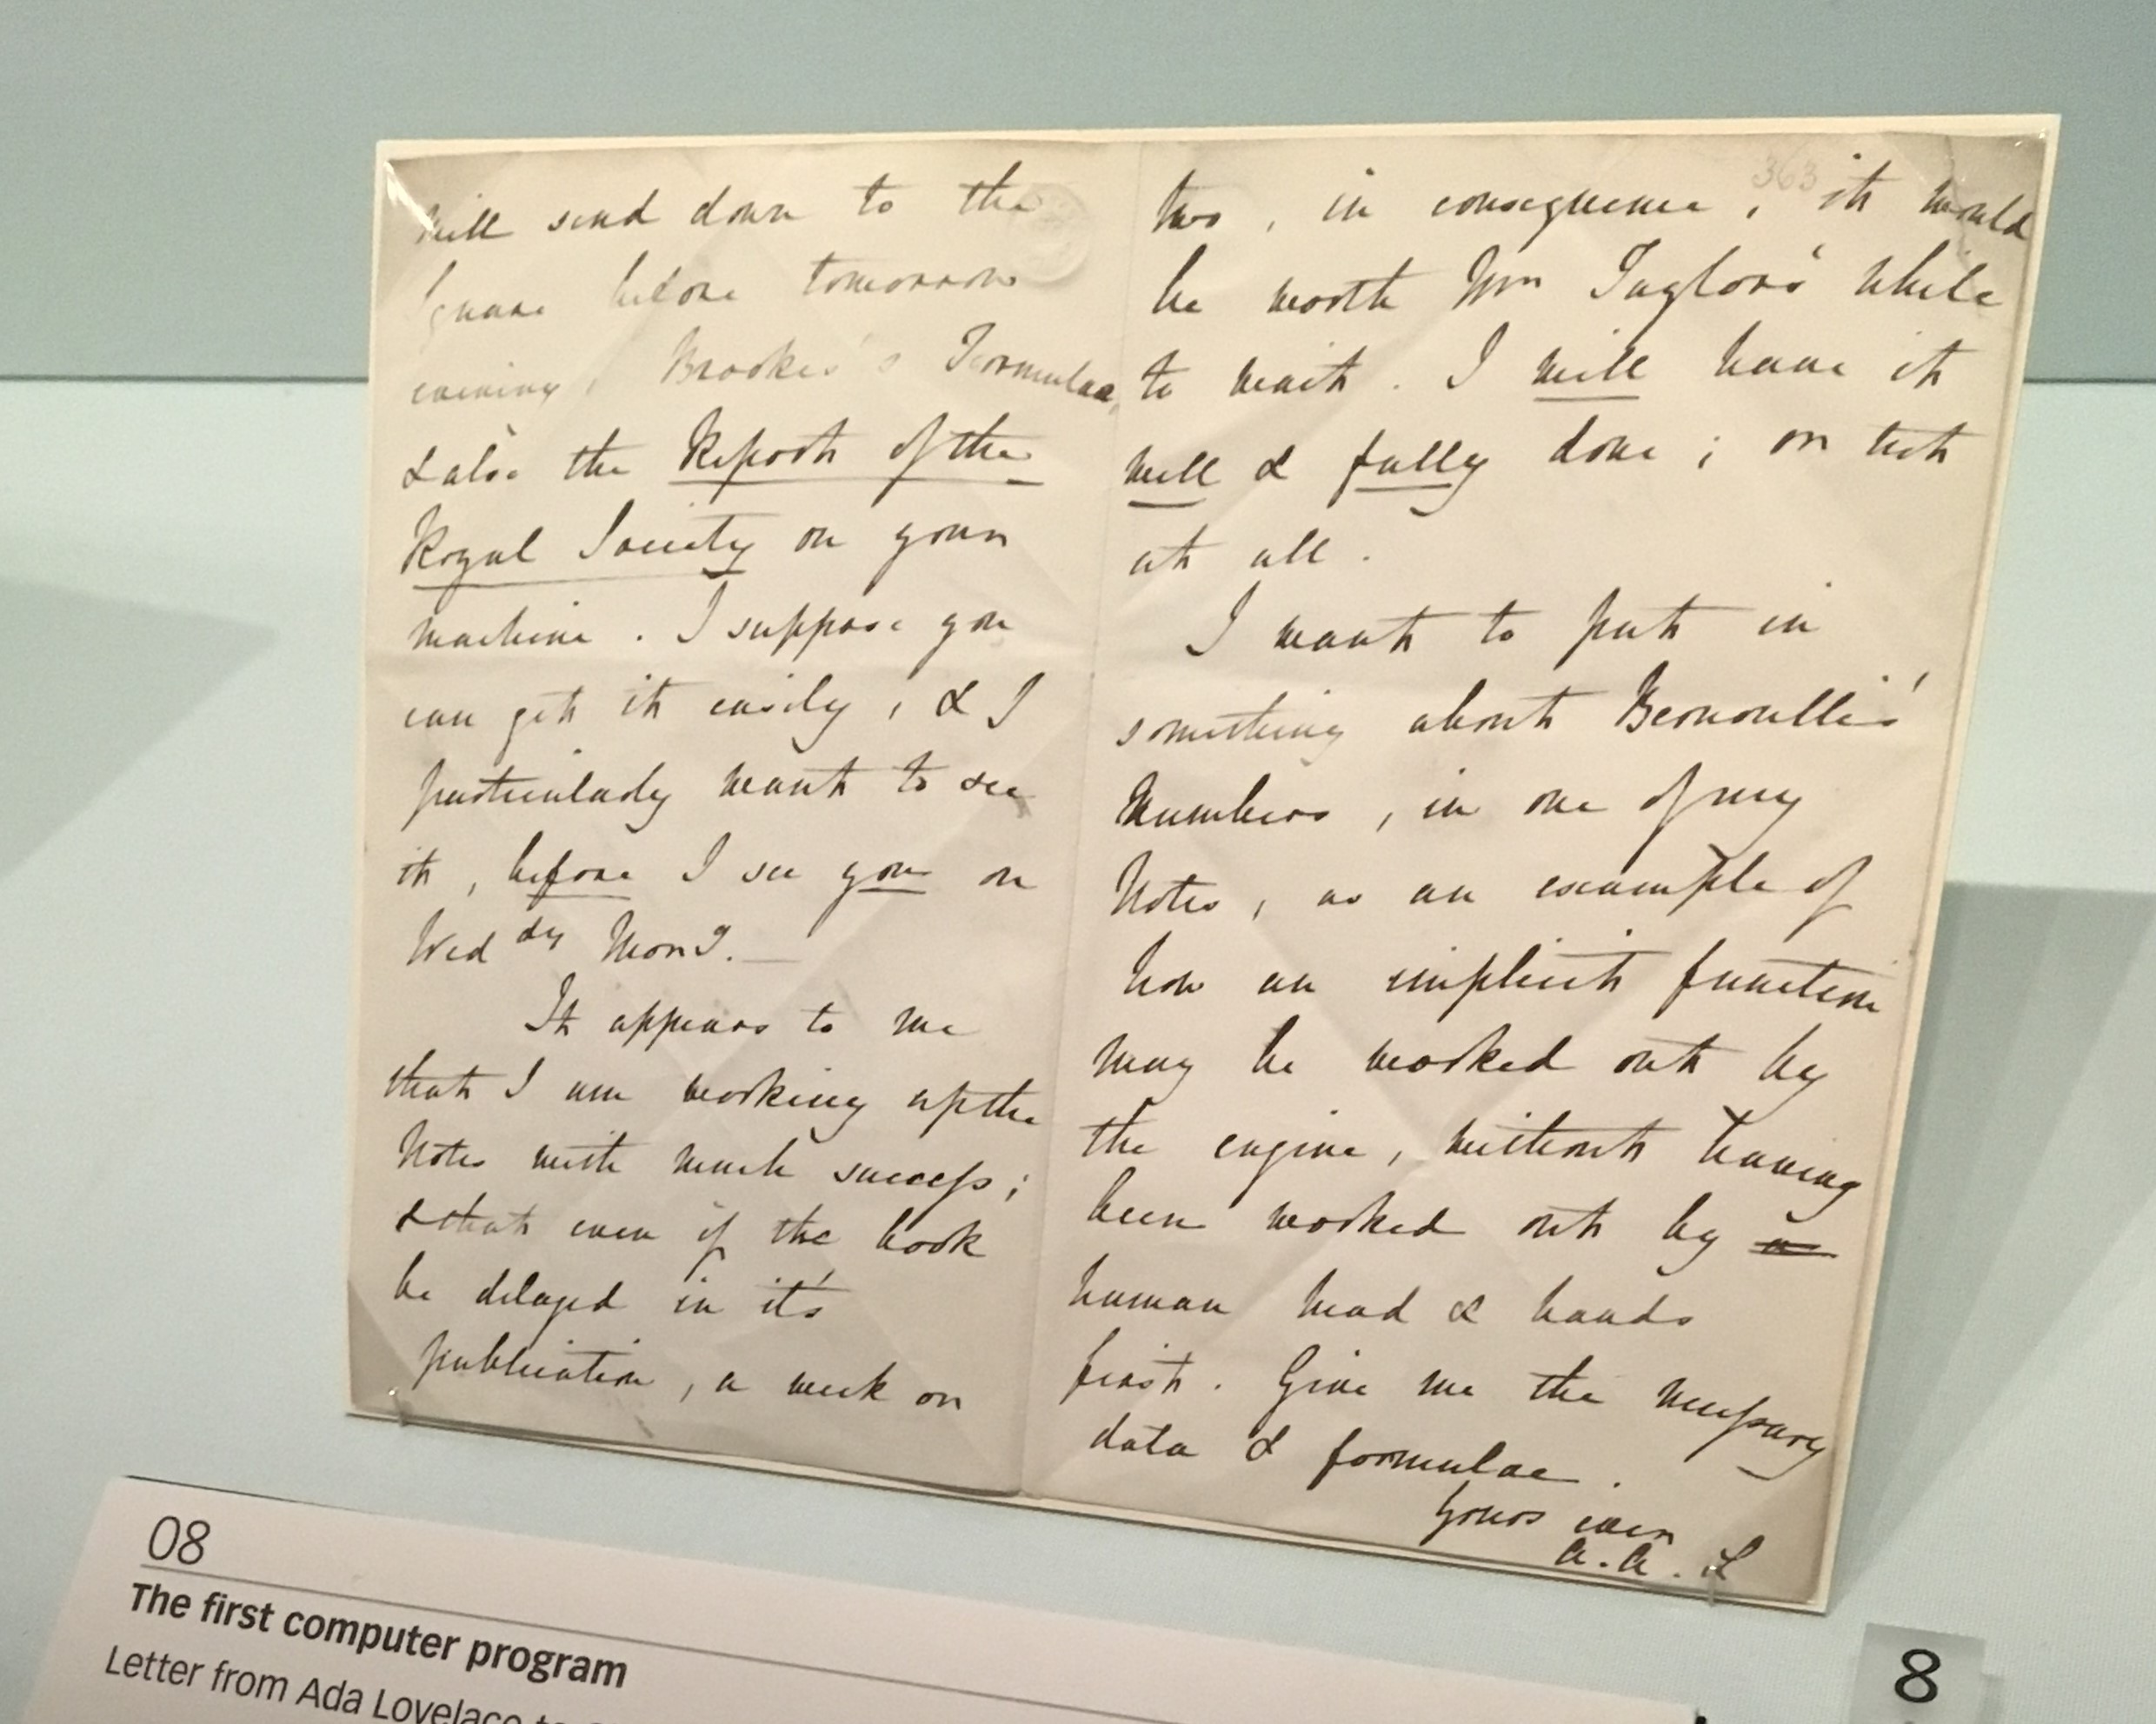 will send down to the
Square before tomorrow
evening, Brooke's Formulae,
& also the Report of the
Royal Society on your
machine. I suppose you
can get it easily, & I
particularly want to see
it, before I see you on
Wed dy Morn g. —
It appears to me
that I am working up the
Notes with much success;
& that even if the book
be delayed in it's
publication, a week or
363
two, in consequence, it would
be worth Mr Taylor's while
to wait. I will have it
well & fully done; or not
at all.
I want to put in
something about Bernoulli's
Numbers, in one of my
Notes, as an example of
how an implicit function
may be worked out by
the engine, without having
been worked out by a
human head & hands
first. Give me the necessary
data & formulae.
Yours ever
A. A. L
08
The first computer program
Letter from Ada Lovelace to
8